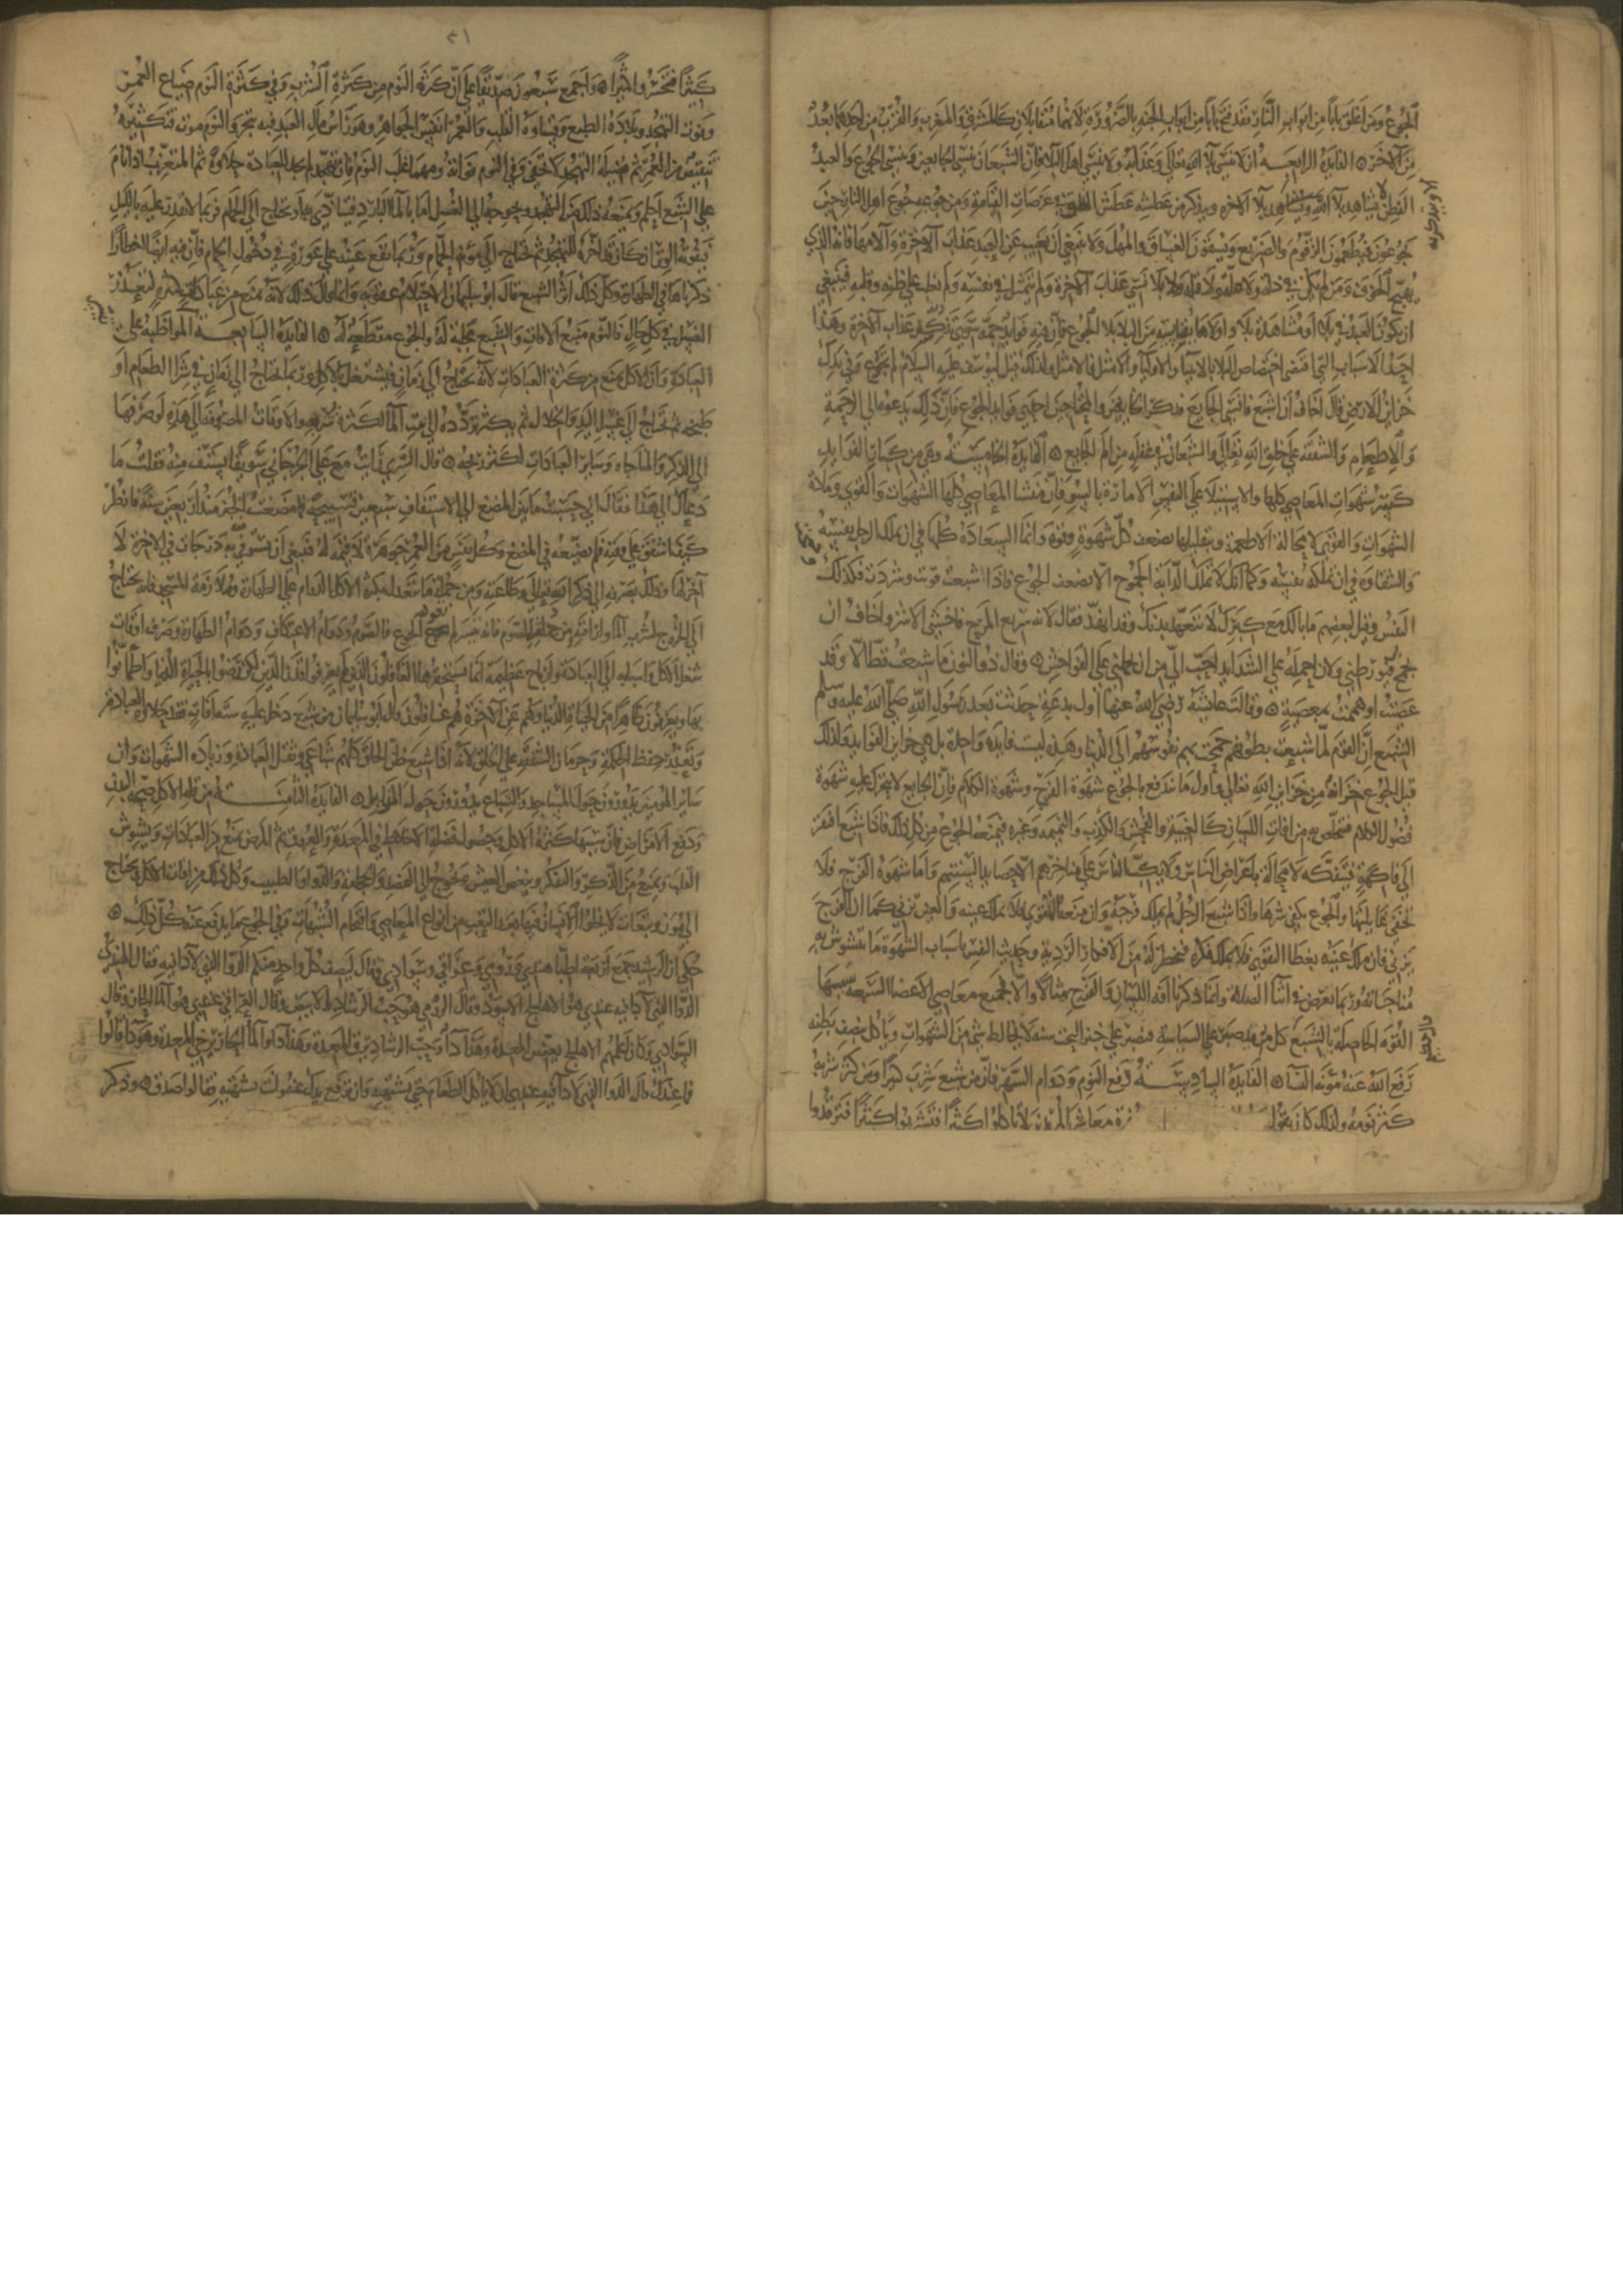 الجوع ومن اغلق بابا من ابواب النار فقد فتح بابا من ابواب الجنة بالضرورة لانهما متقابلان كالمشرق والمغرب والقرب من احدهما بعد
من الاخر ۞ الفايدة الرابعة ان لا ينسى بلا الله تعالى وعذابه ولا ينسى اهل البلا فان الشبعان ينسى الجايعين وينسى الجوع والعبد
الفطن لا يشاهد بلا الا ويتذكر بلا الاخرة ويذكر من عطشه عطش الخلق في عرصات القيامة ومن جوعه جوع اهل النار حين
يجوعون فيطعمون الزقوم والضريع ويسقون الغساق والمهل ولا ينبغي ان يغيب عن العبد عذاب الاخرة والامها فانه الذي
يهيج الخوف ومن لم يكن في ذلة ولا علة ولا قلة ولا بلا نسي عذاب الاخرة ولم يتمثل في نفسه ولم يغلب على قلبه فينبغي
ان يكون العبد في بلا او مشاهدة بلا واولى ما يقاسيه من البلا بلا الجوع فان فيه فوايد جمة سوى تذكر عذاب الاخرة وهذا
احد الاسباب التي اقتضى اختصاص البلا بالانبيا والاوليا والامثل فالامثل ولذلك قيل ليوسف عليه السلام لم تجوع وفي يدك
خزاين الارض قال اخاف ان اشبع فانسى الجايع فذكر الجايعين والمحتاجين احدى فوايد الجوع فان ذلك يدعوه الى الرحمة
والاطعام والشفقة على خلق الله تعالى والشبعان في غفلة من الم الجايع ۞ الفايدة الخامسة وهي من كبار الفوايد
كسر شهوات المعاصي كلها والاستيلا على النفس الامارة بالسو فان منشا المعاصي كلها الشهوات والقوى ومادة
الشهوات والقوى لا محالة الاطعمة وبتقليلها يضعف كل شهوة وقوة وانما السعادة كلها في ان يملك الرجل نفسه
والشقاوة في ان تملكه نفسه وكما انك لا تملك الدابة الجموح الا بضعف الجوع فاذا شبعت قويت وشردت فكذلك
النفس وقيل لبعضهم ما بالك مع كبرك لا تتعهد بدنك وقد انهد فقال لانه سريع المرح فاخشى الاشر واخاف ان
يجمح بي فيورطني ولان احمله على الشدايد احب الي من ان يحملني على الفواحش ۞ وقال ذو النون ما شبعت قط الا وقد
عصيت او هممت بمعصية ۞ وقالت عايشة رضي الله عنها اول بدعة حدثت بعد رسول الله صلى الله عليه وسلم
الشبع ان القوم لما شبعت بطونهم جمحت بهم نفوسهم الى الدنيا وهذه ليست فايدة واحدة بل هي خزاين الفوايد ولذلك
قيل الجوع خزانة من خزاين الله تعالى واول ما يندفع بالجوع شهوة الفرج وشهوة الكلام فان الجايع لا يتحرك عليه شهوة
فضول الكلام فيتخلص به من افات اللسان كالغيبة والفحش والكذب والنميمة وغيره فيمنعه الجوع من كل ذلك فاذا شبع افتقر
الى فاكهة فيتفكه لا محالة باعراض الناس ولا يكب الناس على مناخرهم الا حصايد السنتهم واما شهوة الفرج فلا
تخفى غايلتها والجوع يكفي شرها واذا شبع الرجل لم يملك فرجه وان منعه التقوى فلا يملك عينه والعين تزني كما ان الفرج
يزني فان ملك عينه بغض الطرف فلا يملك فكره فيخطر له من الافكار الردية وحديث النفس باسباب الشهوة ما يتشوش به
مناجاته وربما يعرض في اثنا الصلاة وانما ذكرنا افة اللسان والفرج مثالا والا فجميع معاصي الاعضا السبعة سببها
القوة الحاصلة بالشبع كل مريد صبر على السياسة فيصبر على خبز البحت سنة لا يخالط شيا من الشهوات وياكل نصف بطنه
رفع الله عنه مونة النسا ۞ الفايدة السادسة دفع النوم ودوام السهر فان من شبع شرب كثيرا ومن كثر شربه
كثر نومه ولذلك كان يقول معاشر المريدين لا تاكلوا كثيرا فتشربوا كثيرا فترقدوا
٣١
كثيرا فتخسروا كثيرا ۞ واجمع سبعون صديقا على ان كثرة النوم من كثرة الشرب وفي كثرة النوم ضياع العمر
وفوت التهجد وبلادة الطبع وقساوة القلب والعمر انفس الجواهر وهو راس مال العبد فيه يتجر والنوم موت فتكثيره
ينقص من العمر ثم فضيلة التهجد لا تخفى وفي النوم فواتها ومهما غلب النوم فان تهجد لم يجد للعبادة حلاوة ثم المتعزب اذا نام
على الشبع احتلم ويمنعه ذلك من التهجد ويحوجه الى الغسل اما بالما البارد فيتاذى به او يحتاج الى الحمام فربما لا يقدر عليه بالليل
فيفوته الوتر ان كان قد اخره للتهجد ثم يحتاج الى مونة الحمام وربما تقع عينه على عورة في دخول الحمام فان فيه ايضا اخطارا
ذكرناها في الطهارة وكل ذلك اثر الشبع قال ابو سليمان الاحتلام عقوبة وانما قال ذلك لانه يمنع من عبادات كثيرة لتعذر
الغسل في كل حال فالنوم منبع الافات والشبع مجلبة له والجوع مقطعة له ۞ الفايدة السابعة المواظبة على
العبادة وان الاكل يمنع من كثرة العبادات لانه يحتاج الى زمان فيشتغل بالاكل وربما يحتاج الى زمان في شرا الطعام او
طبخه ثم يحتاج الى غسل اليد والخلال ثم يكثر تردده الى بيت الما لكثرة شربه والاوقات المصروفة الى هذه لو صرفها
الى الذكر والمناجاه وساير العبادات لكثر ربحه ۞ قال السري رايت مع علي الجرجاني سويقا يستف منه فقلت ما
دعاك الى هذا فقال اني حسبت ما بين المضغ الى الاستفاف سبعين تسبيحة فما مضغت الخبز منذ اربعين سنة فانظر
كيف اشفق على وقته فلم يضيعه في المضغ وكل نفس من العمر جوهرة لا قيمة له فينبغي ان يستوفي به درجات في الاخرة لا
اخر لها وذلك بصرفه الى ذكر الله تعالى وطاعته ومن جملة ما يتعذر له بكثرة الاكل الدوام على الطهارة وملازمة المسجد فانه يحتاج
الى الخروج لشرب الما واراقته ومن جملته الصوم فانه يتيسر لمن تعود الجوع فالصوم ودوام الاعتكاف ودوام الطهارة وصرف اوقات
شغل الاكل واسبابه الى العبادة ارباح عظيمة انما يستحقرها الغافلون الذين لم يعرفوا قدر الدين لكن رضوا بالحياة الدنيا واطمانوا
بها ويعرفون ظاهرا من الحياة الدنيا وهم عن الاخرة هم غافلون وقال ابو سليمان من شبع دخل عليه ست افات فقد حلاوة العبادة
وتعذر حفظ الحكمة وحرمان الشفقة على الخلق لانه اذا شبع ظن الخلق كلهم شباعى وثقل العبادة وزيادة الشهوات وان
ساير المومنين يدورون حول المساجد والشباع يدورون حول المزابل ۞ الفايدة الثامنة من قلة الاكل صحة البدن
ودفع الامراض فان سببها كثرة الاكل وحصول فضلة الاخلاط في المعدة والعروق ثم المرض يمنع من العبادات ويشوش
القلب ويمنع من الذكر والفكر وينغص العيش ويحوج الى الفصد والحجامة والدوا والطبيب وكل ذلك من افات الاكل يحتاج
الى مون وتبعات لا يخلو الانسان فيها بعد التعب من انواع المعاصي واقتحام الشبهات وفي الجوع ما يدفع عنه كل ذلك ۞
حكي ان الرشيد جمع اربعة اطبا هندي ورومي وعراقي وسوادي وقال ليصف كل واحد منكم الدوا الذي لا دا فيه فقال الهندي
الدوا الذي لا دا فيه عندي هو الاهليلج الاسود وقال الرومي هو حب الرشاد الابيض وقال العراقي عندي هو الما الحار وقال
السوادي وكان اعلمهم الاهليلج يعفص المعدة وهذا دا وحب الرشاد يزلق المعدة وهذا دا والما الحار يرخي المعدة وهو دا قالوا
فما عندك قال الدوا الذي لا دا فيه عندي ان لا ياكل الطعام حتى يشتهيه وان ترفع يدك عنه وانت تشتهيه فقالوا صدق ۞ وذكر